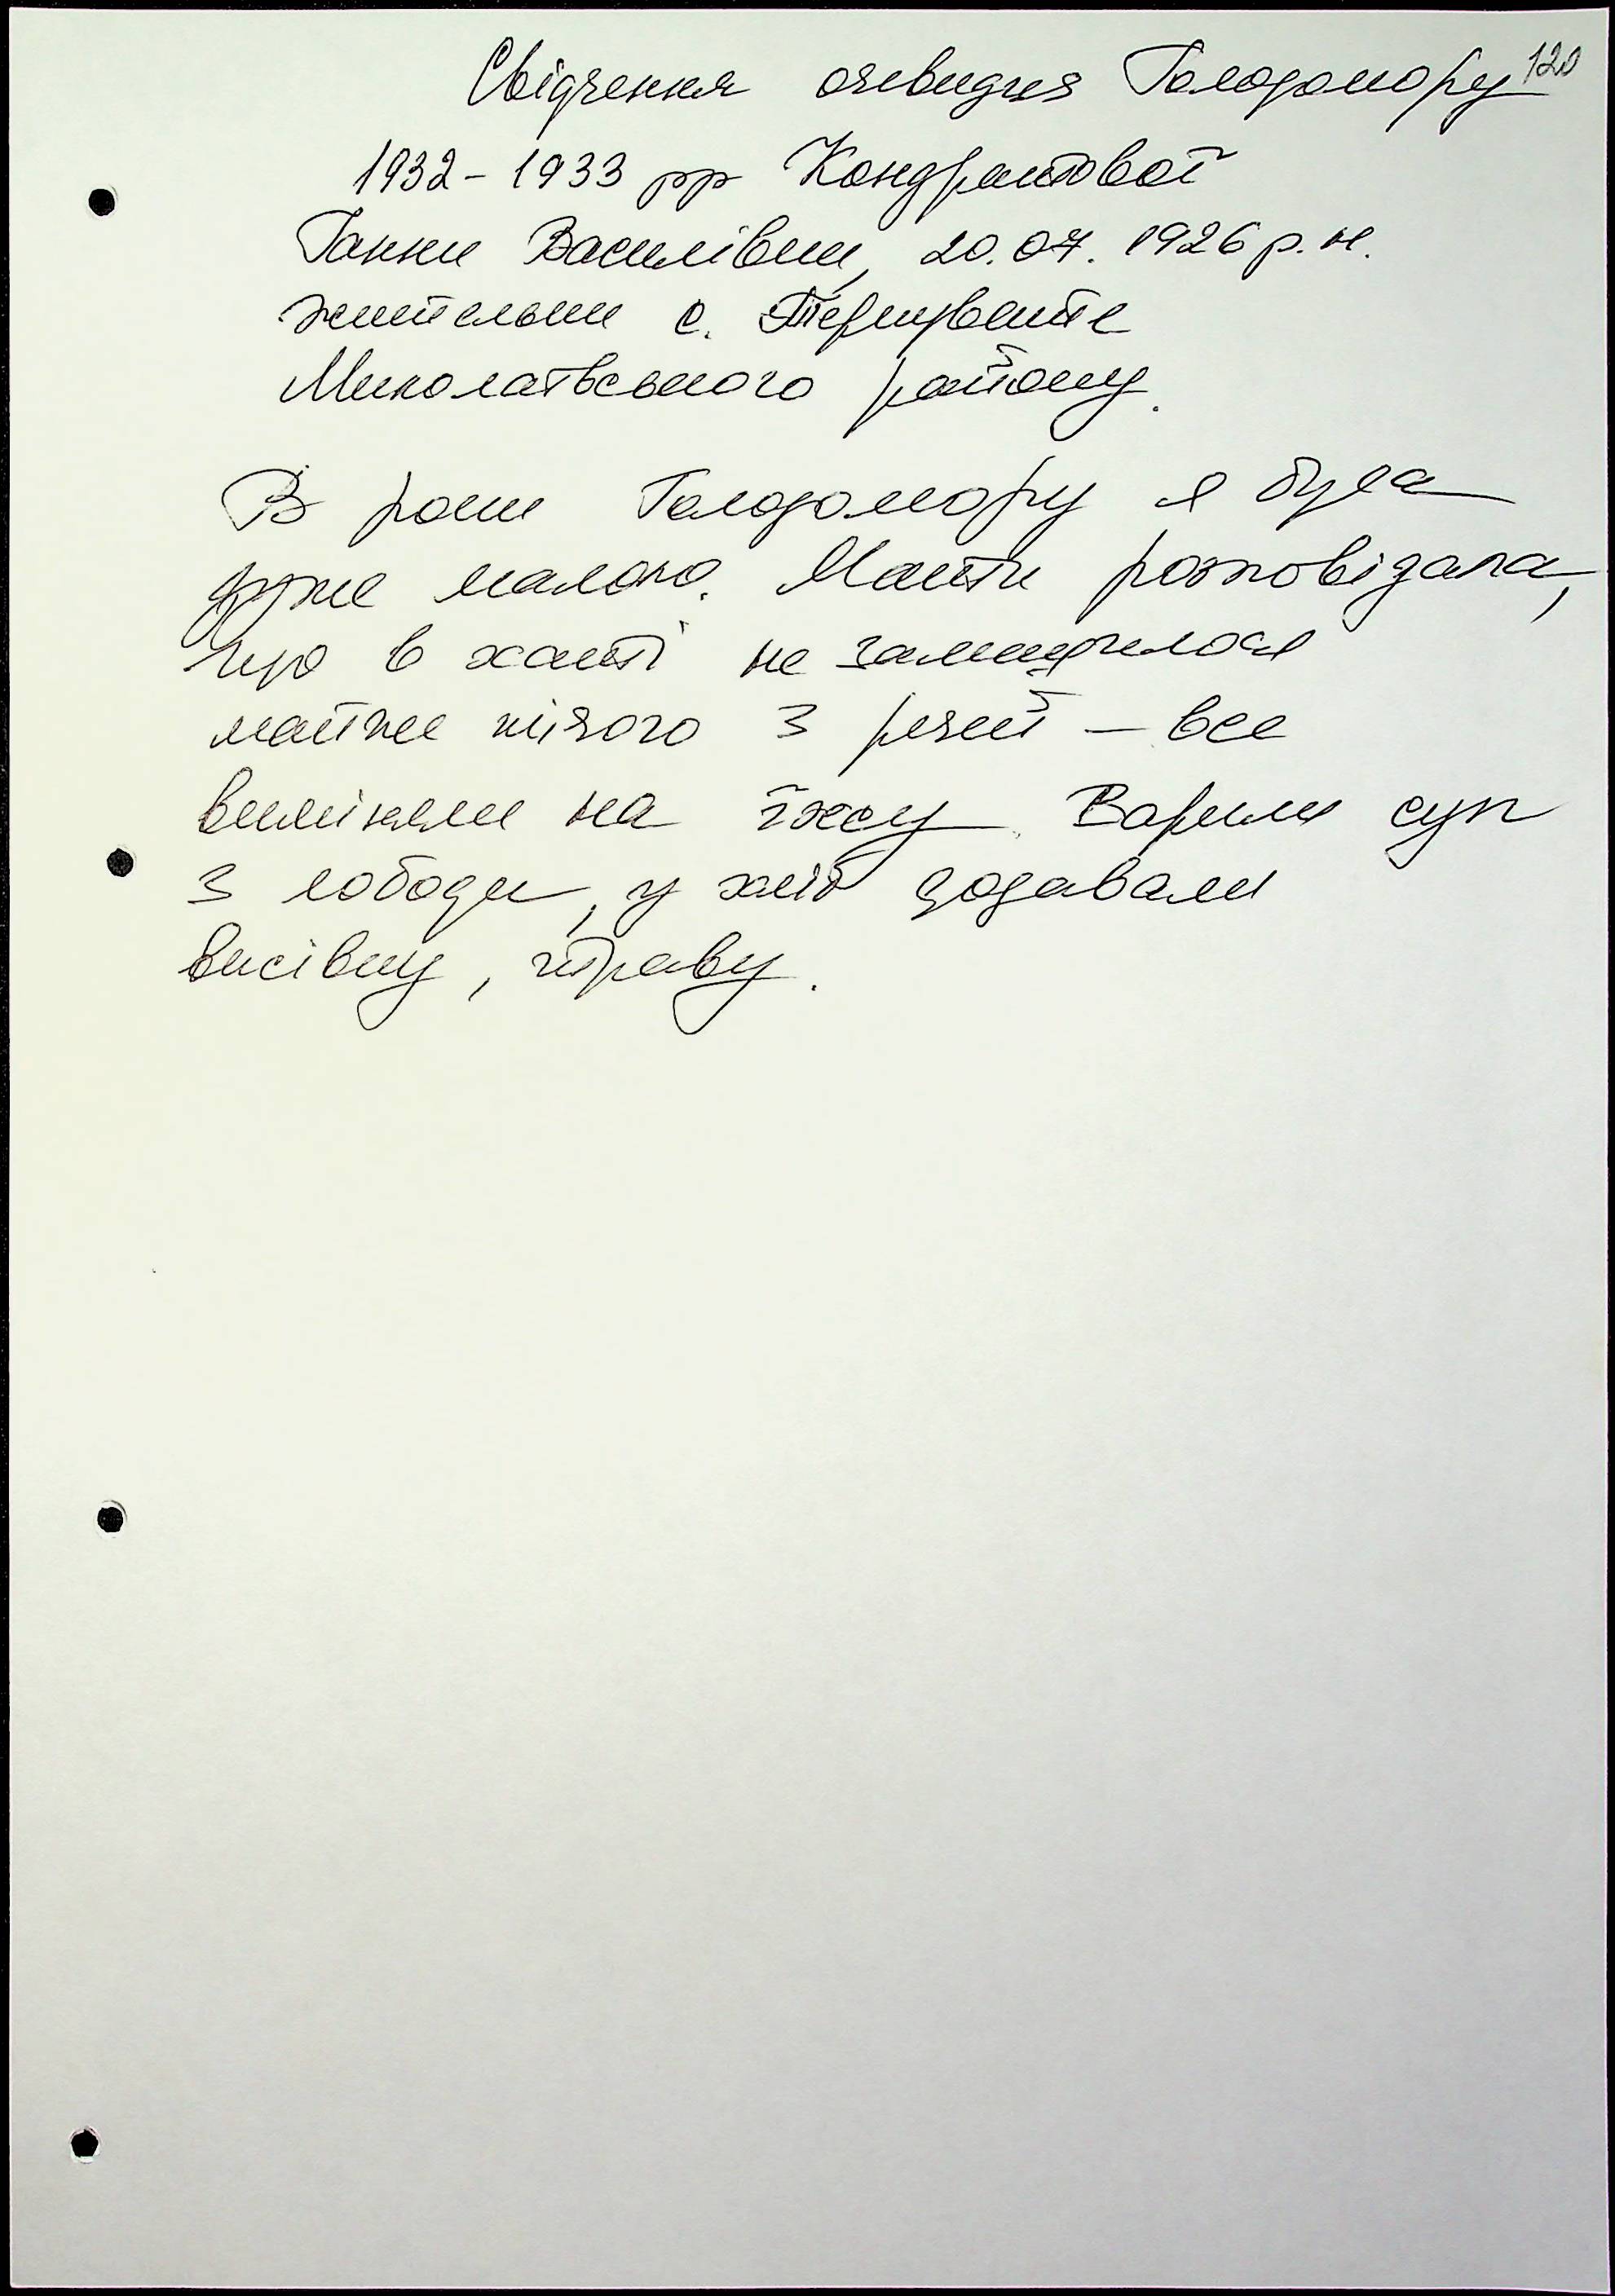 Свідчення очевидця Голодомору 120
1932-1933 рр Кондратової
Ганни Василівни, 20.07.1926 р.н.
жительки с. Тернувате
Миколаївського району.
В роки Голодомору я була
дуже малою. Мати розповідала,
що в хаті не залишилося
майже нічого з речей – все
виміняли на їжу. Варили суп
з лободи, у хліб додавали
висівку, траву.